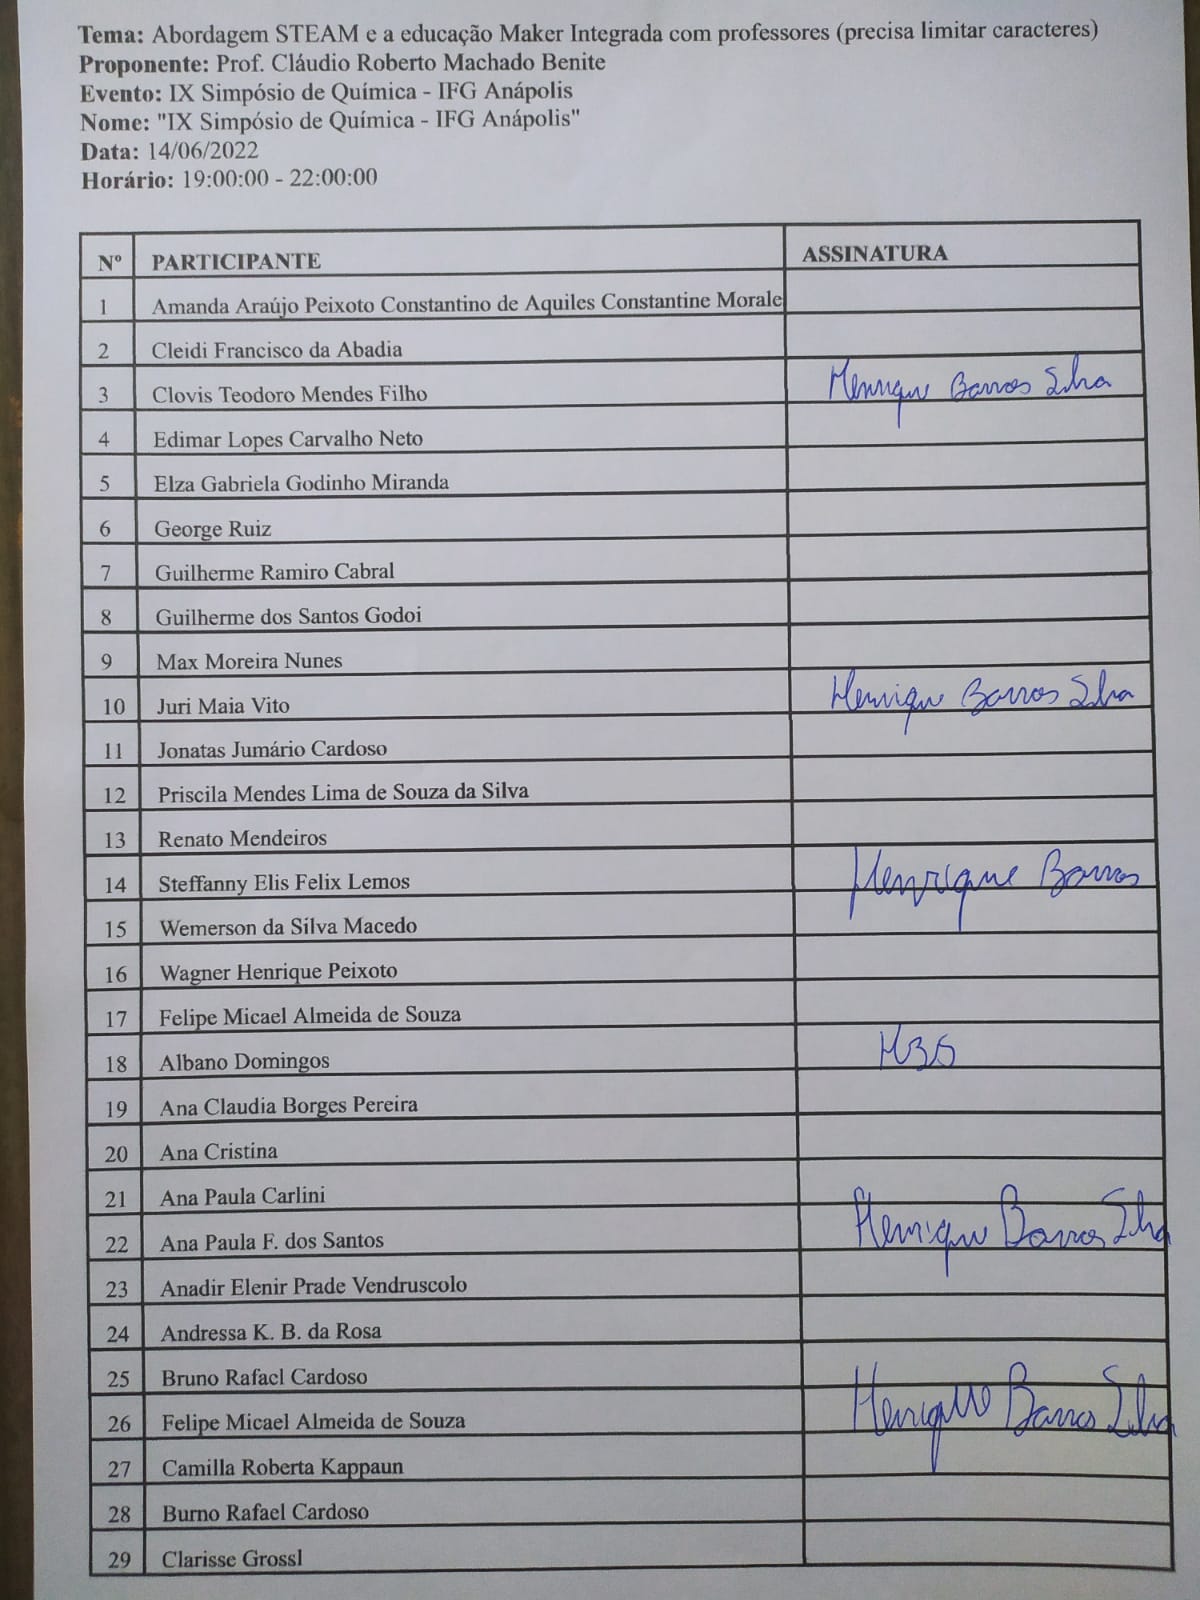 Tema: Abordagem STEAM e a educação Maker Integrada com professores (precisa limitar caracteres)
Proponente: Prof. Cláudio Roberto Machado Benite
Evento: IX Simpósio de Química - IFG Anápolis
Nome: "IX Simpósio de Química - IFG Anápolis"
Data: 14/06/2022
Horário: 19:00:00 - 22:00:00
Nº PARTICIPANTE ASSINATURA
1 Amanda Araújo Peixoto Constantino de Aquiles Constantine Morale
2 Cleidi Francisco da Abadia
3 Clovis Teodoro Mendes Filho Henrique Barros Silva
4 Edimar Lopes Carvalho Neto
5 Elza Gabriela Godinho Miranda
6 George Ruiz
7 Guilherme Ramiro Cabral
8 Guilherme dos Santos Godoi
9 Max Moreira Nunes
10 Juri Maia Vito Henrique Barros Silva
11 Jonatas Jumário Cardoso
12 Priscila Mendes Lima de Souza da Silva
13 Renato Mendeiros
14 Steffanny Elis Felix Lemos Henrique Barros
15 Wemerson da Silva Macedo
16 Wagner Henrique Peixoto
17 Felipe Micael Almeida de Souza
18 Albano Domingos HBS
19 Ana Claudia Borges Pereira
20 Ana Cristina
21 Ana Paula Carlini
22 Ana Paula F. dos Santos Henrique Barros Silva
23 Anadir Elenir Prade Vendruscolo
24 Andressa K. B. da Rosa
25 Bruno Rafael Cardoso
26 Felipe Micael Almeida de Souza Henrique Barros Silva
27 Camilla Roberta Kappaun
28 Burno Rafael Cardoso
29 Clarisse Grossl